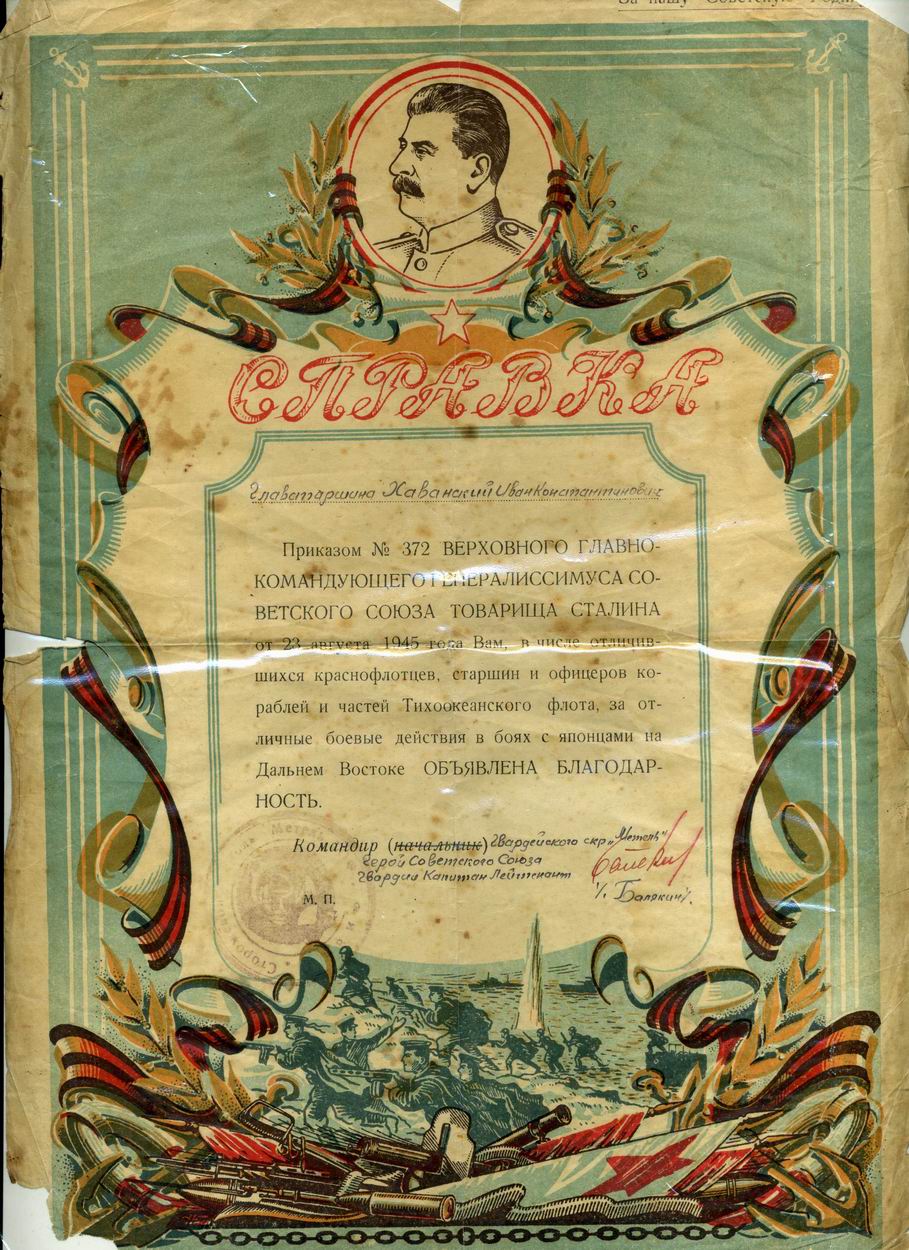 За нашу Советскую Родину
СПРАВКА
Главстаршина Хаванский Иван Константинович
Приказом № 372 ВЕРХОВНОГО ГЛАВНО-
КОМАНДУЮЩЕГО ГЕНЕРАЛИССИМУСА СО-
ВЕТСКОГО СОЮЗА ТОВАРИЩА СТАЛИНА
от 23 августа 1945 года Вам, в числе отличив-
шихся краснофлотцев, старшин и офицеров ко-
раблей и частей Тихоокеанского флота, за от-
личные боевые действия в боях с японцами на
Дальнем Востоке ОБЪЯВЛЕНА БЛАГОДАР-
НОСТЬ.
Командир (начальник) Гвардейского скр „Метель"
Герой Советского Союза
Гвардии Капитан Лейтенант
/. Балякин/.
М. П.